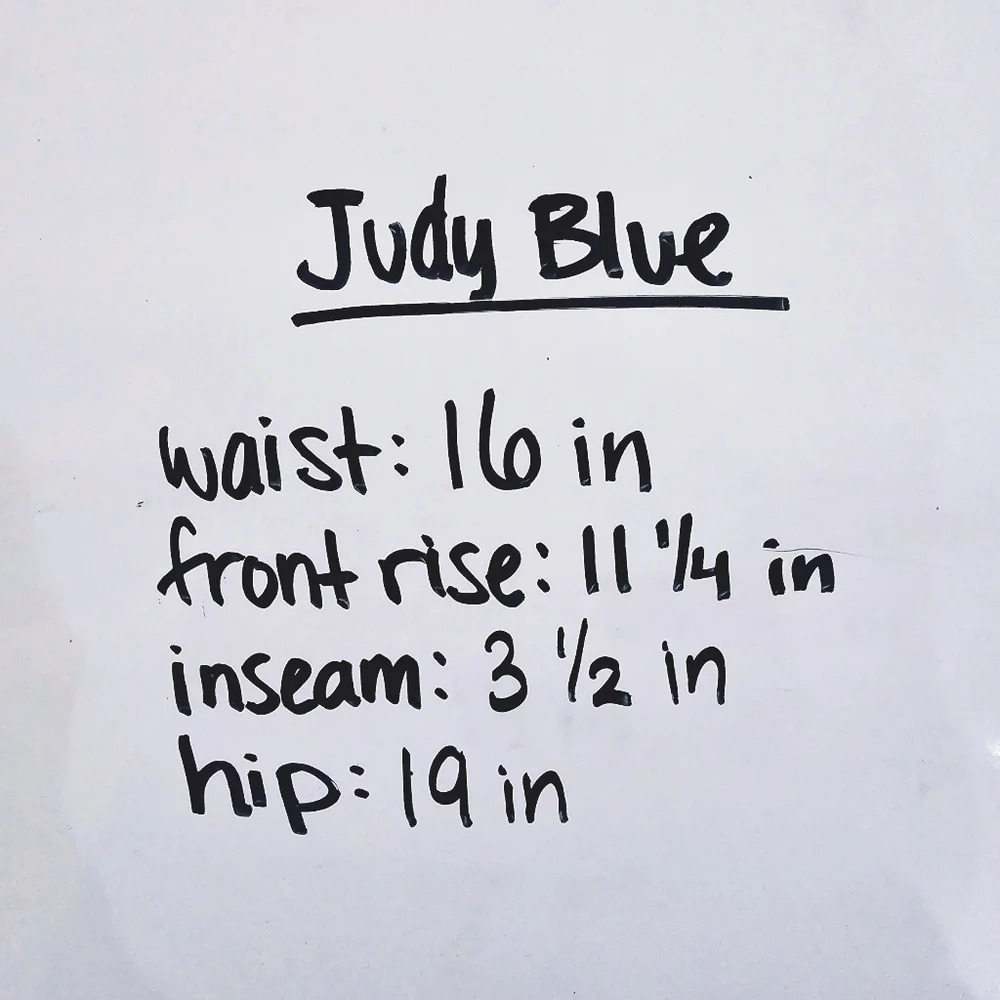 Judy Blue
waist: 16 in
front rise: 11 1/4 in
inseam: 3 1/2 in
hip: 19 in